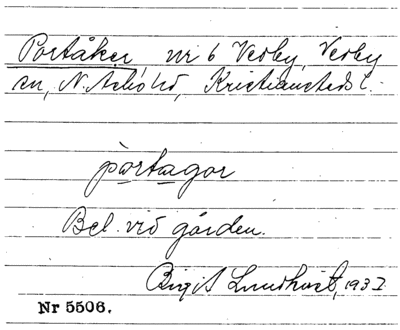 Portåker nr 6 Vedby, Vedby
sn, N. Åsbo hd, Kristianstads l.
pòrtagor
Bel. vid gården.
Birgit Lundkvist, 1932
Nr 5506.